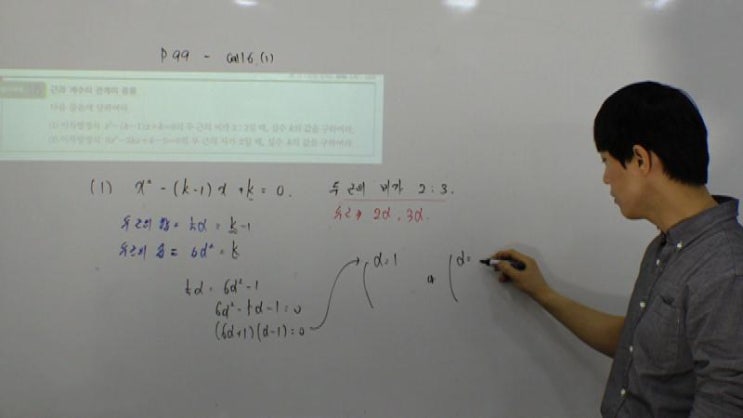 P 99 -
근과 계수의 관계의 응용
다음 물음에 답하여라.
(1) 이차방정식 x²-(k-1)x+k=0의 두 근의 비가 2 : 3일 때, 실수 k의 값을 구하여라.
(2) 이차방정식 두 근의 차가 2일 때, 실수 k의 값을 구하여라.
(1) x² - (k-1)x + k = 0. 두 근의 비가 2:3.
두근의 합 = 5α = k-1 두근을 2α, 3α.
두근의 곱 = 6α² = k
5α = 6α²-1 α=1 or α=
6α²-5α-1=0
(6α+1)(α-1)=0